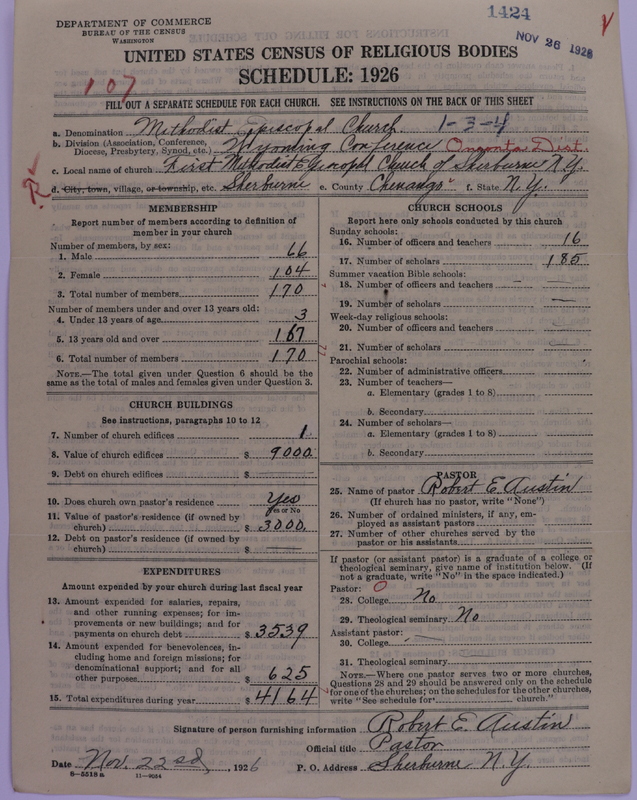 1424
NOV 26 1926
DEPARTMENT OF COMMERCE
BUREAU OF THE CENSUS
WASHINGTON
UNITED STATES CENSUS OF RELIGIOUS BODIES
SCHEDULE: 1926
107
FILL OUT A SEPARATE SCHEDULE FOR EACH CHURCH. SEE INSTRUCTIONS ON THE BACK OF THIS SHEET
a. Denomination Methodist Episcopal Church 1-3-4
b. Division (Association, Conference, Diocese, Presbytery, Synod, etc.) Wyoming Conference Oneonta Dist.
c. Local name of church First Methodist Episcopal Church of Sherburne N.Y.
d. City, town, village, or township, etc. Sherburne e. County Chenango f. State N.Y.
MEMBERSHIP
Report number of members according to definition of
member in your church
Number of members, by sex:
1. Male 66
2. Female 104
3. Total number of members 170
Number of members under and over 13 years old:
4. Under 13 years of age 3
5. 13 years old and over 167
6. Total number of members 170
NOTE.—The total given under Question 6 should be the
same as the total of males and females given under Question 3.
CHURCH BUILDINGS
See instructions, paragraphs 10 to 12
7. Number of church edifices 1
8. Value of church edifices $ 9000.
9. Debt on church edifices $
10. Does church own pastor's residence Yes
Yes or No
11. Value of pastor's residence (if owned by
church) $ 3000.
12. Debt on pastor's residence (if owned by
church) $
EXPENDITURES
Amount expended by your church during last fiscal year
13. Amount expended for salaries, repairs,
and other running expenses; for im-
provements or new buildings; and for
payments on church debt $ 3539
14. Amount expended for benevolences, in-
cluding home and foreign missions; for
denominational support; and for all
other purposes $ 625
15. Total expenditures during year $ 4164
CHURCH SCHOOLS
Report here only schools conducted by this church
Sunday schools:
16. Number of officers and teachers 16
17. Number of scholars 185
Summer vacation Bible schools:
18. Number of officers and teachers
19. Number of scholars
Week-day religious schools:
20. Number of officers and teachers
21. Number of scholars
Parochial schools:
22. Number of administrative officers
23. Number of teachers—
a. Elementary (grades 1 to 8)
b. Secondary
24. Number of scholars—
a. Elementary (grades 1 to 8)
b. Secondary
PASTOR
25. Name of pastor Robert E. Austin
(If church has no pastor, write "None")
26. Number of ordained ministers, if any, em-
ployed as assistant pastors
27. Number of other churches served by the
pastor or his assistants
If pastor (or assistant pastor) is a graduate of a college or
theological seminary, give name of institution below. (If
not a graduate, write "No" in the space indicated.)
Pastor: 0
28. College No
29. Theological seminary No
Assistant pastor:
30. College
31. Theological seminary
NOTE.—Where one pastor serves two or more churches,
Questions 28 and 29 should be answered only on the schedule
for one of the churches; on the schedules for the other churches,
write "See schedule for church."
Signature of person furnishing information Robert E. Austin
Official title Pastor
Date Nov. 22nd, 1926 P. O. Address Sherburne N.Y.
8-5518 a 11-9054